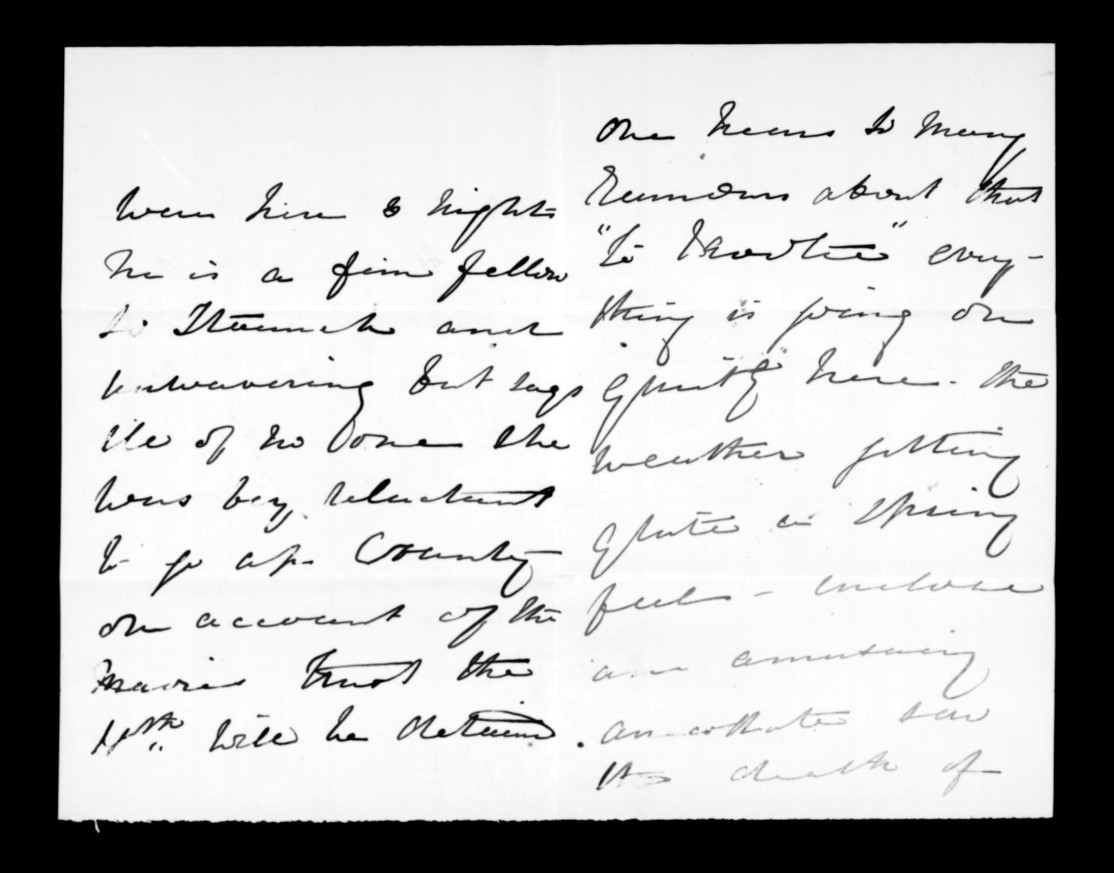 were here 3 nights
he is a fine fellow
so staunch and
unwavering but says
He of no one she
was very reluctant
to go up Country
on account of the
Maories trust the
14th will be detained.
one hears so many
rumours about that
everything
is going on
quietly here - the
weather getting
quite a spring
feel - enclose
an amusing
anecdote saw
the death of